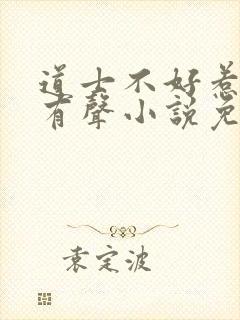 道士不好惹
有聲小說免
袁定波